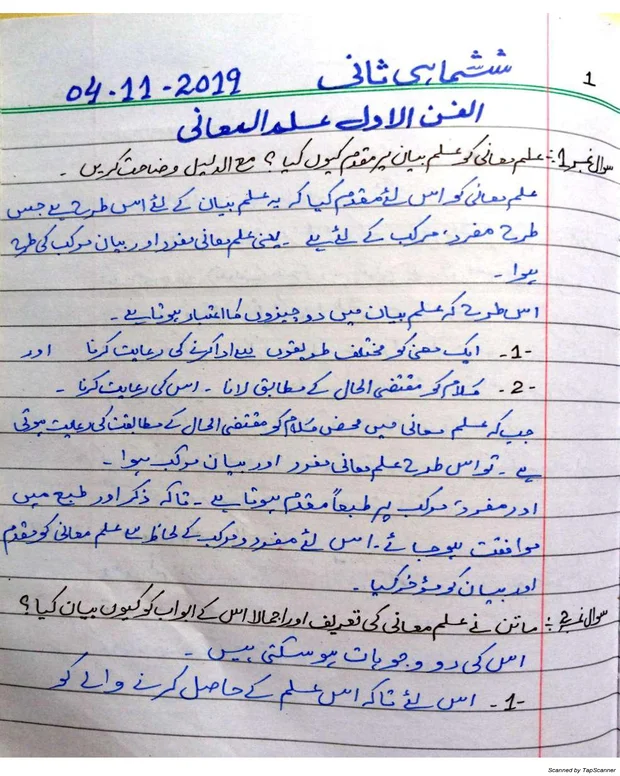 1
ششماہی ثانی 04.11-2019
الفن الاول علم المعانی
سوال نمبر 1: علم معانی کو علم بیان پر مقدم کیوں کیا؟ مع الدلیل وضاحت کریں۔
علم معانی کو اس لئے مقدم کیا کہ یہ علم بیان کے لئے اس طرح ہے جس
طرح مفرد، مرکب کے لئے ہے۔ یعنی علم معانی مفرد اور بیان مرکب کی طرح
ہوا۔
اس طرح کہ علم بیان میں دو چیزوں کا اعتبار ہوتا ہے۔
-1- ایک معنی کو مختلف طریقوں سے ادا کرنے کی رعایت کرنا اور
-2- کلام کو مقتضی الحال کے مطابق لانا۔ اس کی رعایت کرنا۔
جب کہ علم معانی میں محض کلام کو مقتضی الحال کے مطابقت کی رعایت ہوتی
ہے۔ تو اس طرح علم معانی مفرد اور بیان مرکب ہوا۔
اور مفرد، مرکب پر طبعاً مقدم ہوتا ہے۔ تاکہ ذکر اور طبع میں
موافقت ہو جائے۔ اس لئے مفرد و مرکب کے لحاظ سے علم معانی کو مقدم
اور بیان کو مؤخر کیا۔
سوال نمبر 2: ماتن نے علم معانی کی تعریف اور اجمالا اس کے ابواب کو کیوں بیان کیا؟
اس کی دو وجوہات ہو سکتی ہیں۔
-1- اس لئے تاکہ اس علم کے حاصل کرنے والے کو
Scanned by TapScanner